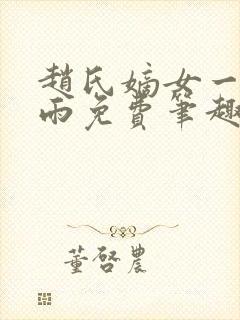 趙氏嫡女一
雨免費筆趣
董啓農